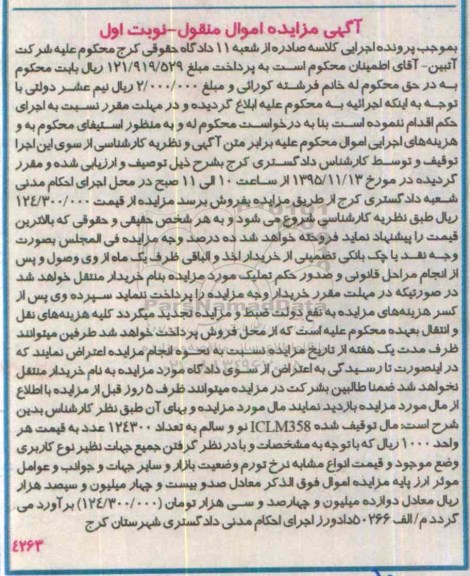 آگهی مزایده اموال منقول-نوبت اول
بموجب پرونده اجرایی کلاسه صادره از شعبه ۱۱ دادگاه حقوقی کرج محکوم علیه شرکت
آتیین- آقای اطمینان محکوم است به پرداخت مبلغ ۱۲۱/۹۱۹/۵۲۹ ریال بابت محکوم
به در حق محکوم له خانم فرشته کورائی و مبلغ ۲/۰۰۰/۰۰۰ ریال نیم عشر دولتی با
توجه به اینکه اجرائیه به محکوم علیه ابلاغ گردیده و در مهلت مقرر نسبت به اجرای
حکم اقدام ننموده است بنا به درخواست محکوم له و به منظور استیفای محکوم به و
هزینه‌های اجرایی اموال محکوم علیه برابر متن آگهی و نظریه کارشناسی از سوی این اجرا
توقیف و توسط کارشناس دادگستری کرج بشرح ذیل توصیف و ارزیابی شده و مقرر
گردیده در مورخ ۱۳۹۵/۱۱/۱۳ از ساعت ۱۰ الی ۱۱ صبح در محل اجرای احکام مدنی
شعبه دادگستری کرج از طریق مزایده بفروش برسد مزایده از قیمت ۱۲٤/۳۰۰/۰۰۰
ریال طبق نظریه کارشناسی شروع می شود و به هر شخص حقیقی و حقوقی که بالاترین
قیمت را پیشنهاد نماید فروخته خواهد شد ده درصد وجه مزایده فی المجلس بصورت
وجه نقد یا چک بانکی تضمینی از خریدار اخذ و الباقی ظرف یک ماه از وی وصول و پس
از انجام مراحل قانونی و صدور حکم تملیک مورد مزایده بنام خریدار منتقل خواهد شد
در صورتیکه در مهلت مقرر خریدار وجه مزایده را پرداخت ننماید سپرده وی پس از
کسر هزینه‌های مزایده به نفع دولت ضبط و مزایده تجدید میگردد کلیه هزینه‌های نقل
و انتقال بعهده محکوم علیه است که از محل فروش پرداخت خواهد شد طرفین میتوانند
ظرف مدت یک هفته از تاریخ مزایده نسبت به نحوه انجام مزایده اعتراض نمایند که
در اینصورت تا رسیدگی به اعتراض از سوی دادگاه مورد مزایده به نام خریدار منتقل
نخواهد شد ضمنا طالبین بشرکت در مزایده میتوانند ظرف ۵ روز قبل از مزایده با اطلاع
از مال مورد مزایده بازدید نمایند مال مورد مزایده و بهای آن طبق نظر کارشناس بدین
شرح است: مال توقیف شده ICLM358 نو و سالم به تعداد ۱۲٤۳۰۰ عدد به قیمت هر
واحد ۱۰۰۰ ریال که با توجه به مشخصات و با در نظر گرفتن جمیع جهات نظیر نوع کاربری
وضع موجود و قیمت انواع مشابه نرخ تورم وضعیت بازار و سایر جهات و جوانب و عوامل
موثر ارز پایه مزایده اموال فوق الذکر معادل صدو بیست و چهار میلیون و سیصد هزار
ریال معادل دوازده میلیون و چهارصد و سی هزار تومان (۱۲٤/۳۰۰/۰۰۰) برآورد می
گردد م/الف ۵۰۲۶۶ دادورز اجرای احکام مدنی دادگستری شهرستان کرج
٤۲۶۳
ParsNamadData